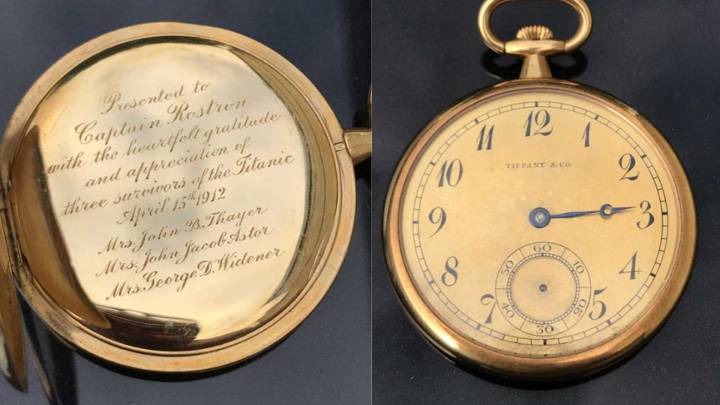 Presented to
Captain Rostron
with the heartfelt gratitude
and appreciation of
three survivors of the Titanic
April 15th 1912
Mrs. John B. Thayer
Mrs. John Jacob Astor
Mrs. George D. Widener
TIFFANY & CO.
12
1
2
3
4
5
7
8
9
10
11
60
10
20
30
40
50